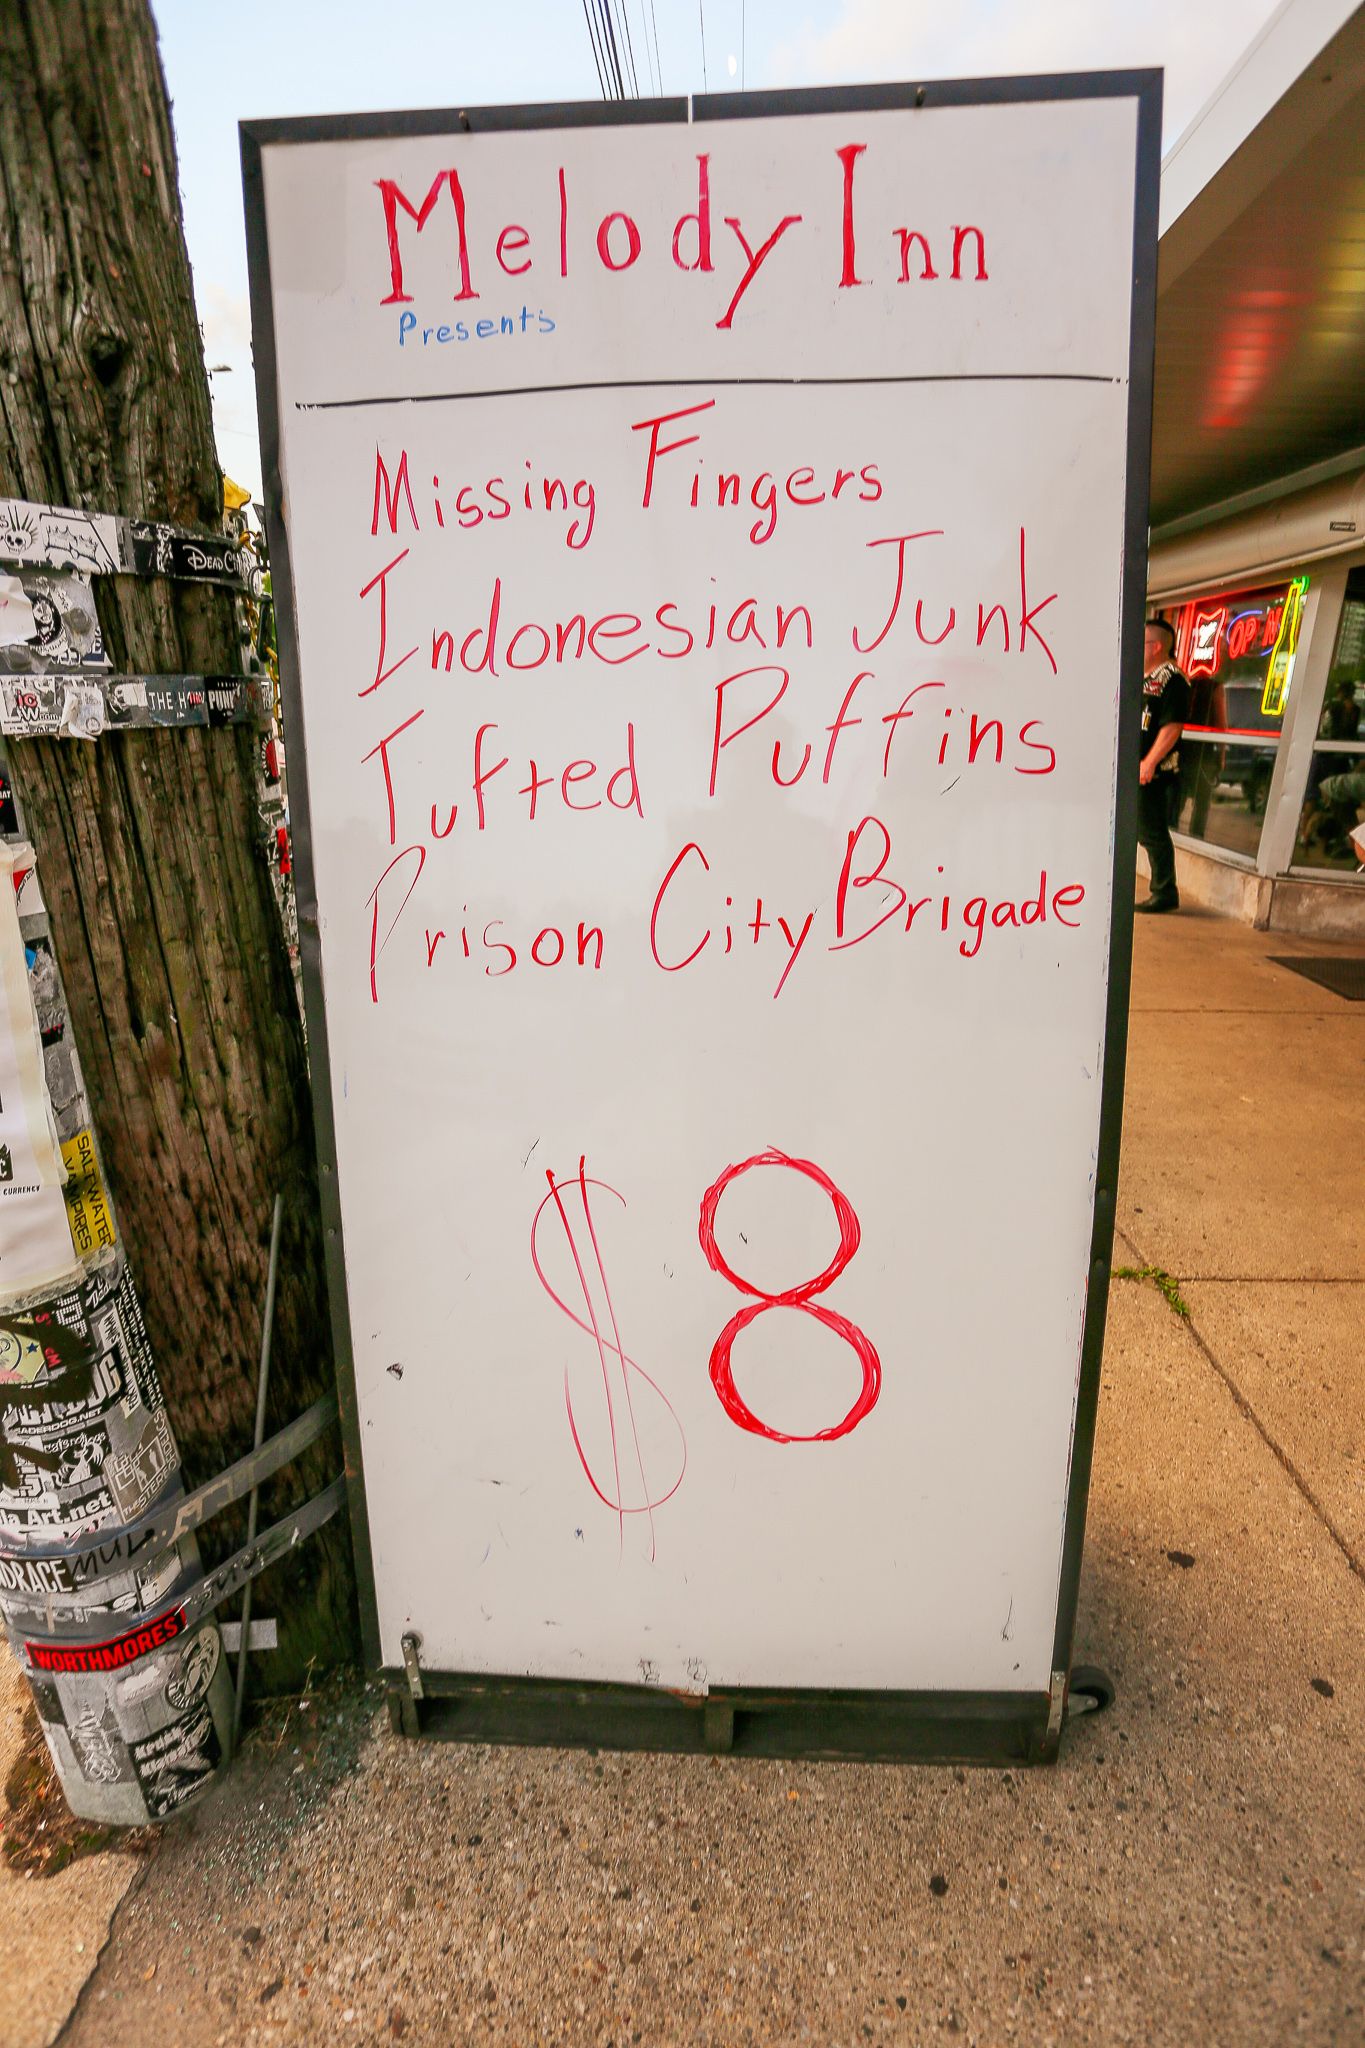 Melody Inn
Presents
Missing Fingers
Indonesian Junk
Tufted Puffins
Prison City Brigade
$8
DEAD
THE
PUNK
CURRENCY
SALTWATER
VAMPIRES
Art.net
WORTHMORES
OP